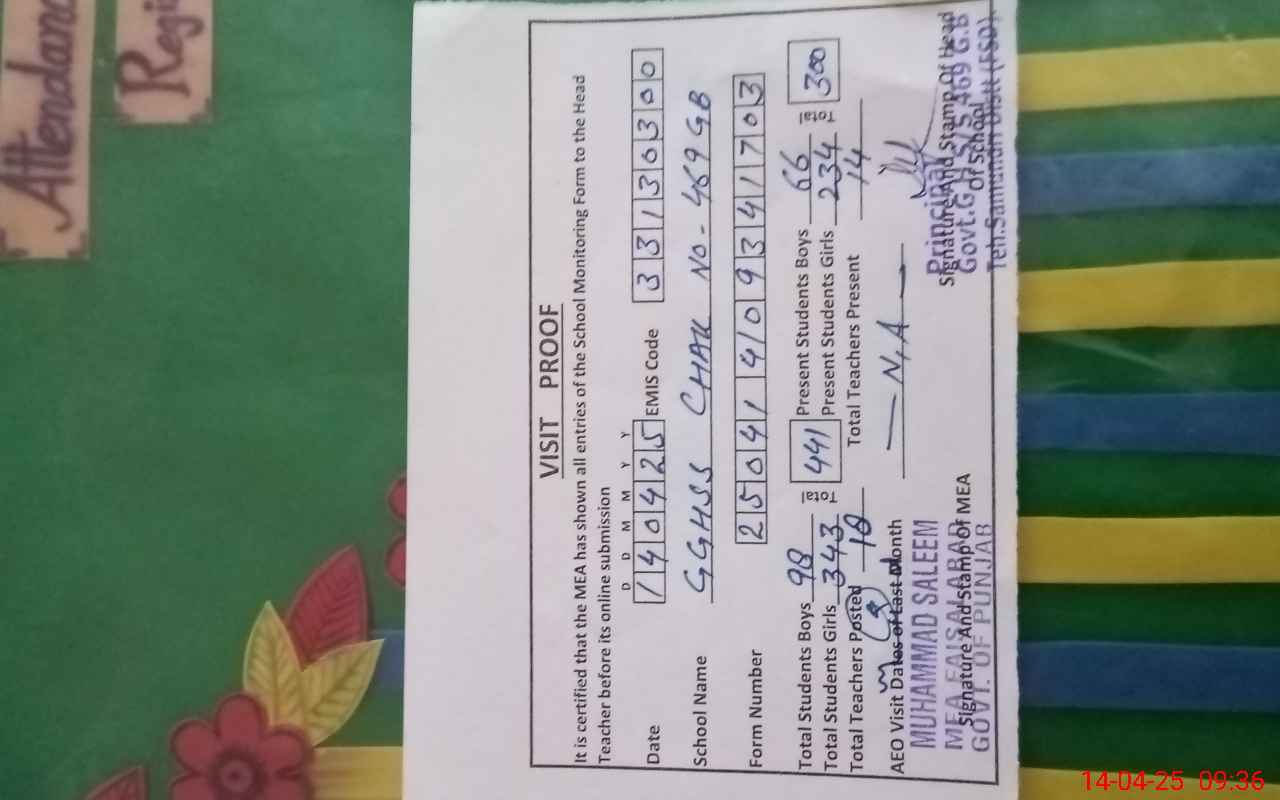 Attendanc
Regi
VISIT PROOF
It is certified that the MEA has shown all entries of the School Monitoring Form to the Head
Teacher before its online submission
D D M M Y Y
Date 140425 EMIS Code 33130300
School Name GGHSS CHAK NO-469 GB
Form Number 2504141093441703
Total Students Boys 98 Total 441 Present Students Boys 66 Total 300
Total Students Girls 343 Present Students Girls 234
Total Teachers Posted 18 Total Teachers Present 14
AEO Visit Dates of Last Month — N.A —
MUHAMMAD SALEEM
MEA FAISALABAD
GOVT. OF PUNJAB
Signature And Stamp Of MEA
Principal
Govt.G.H.S/S 469 G.B
Teh.Samundri Distt (FSD).
Signature And Stamp Of Head
Of School
14-04-25 09:36